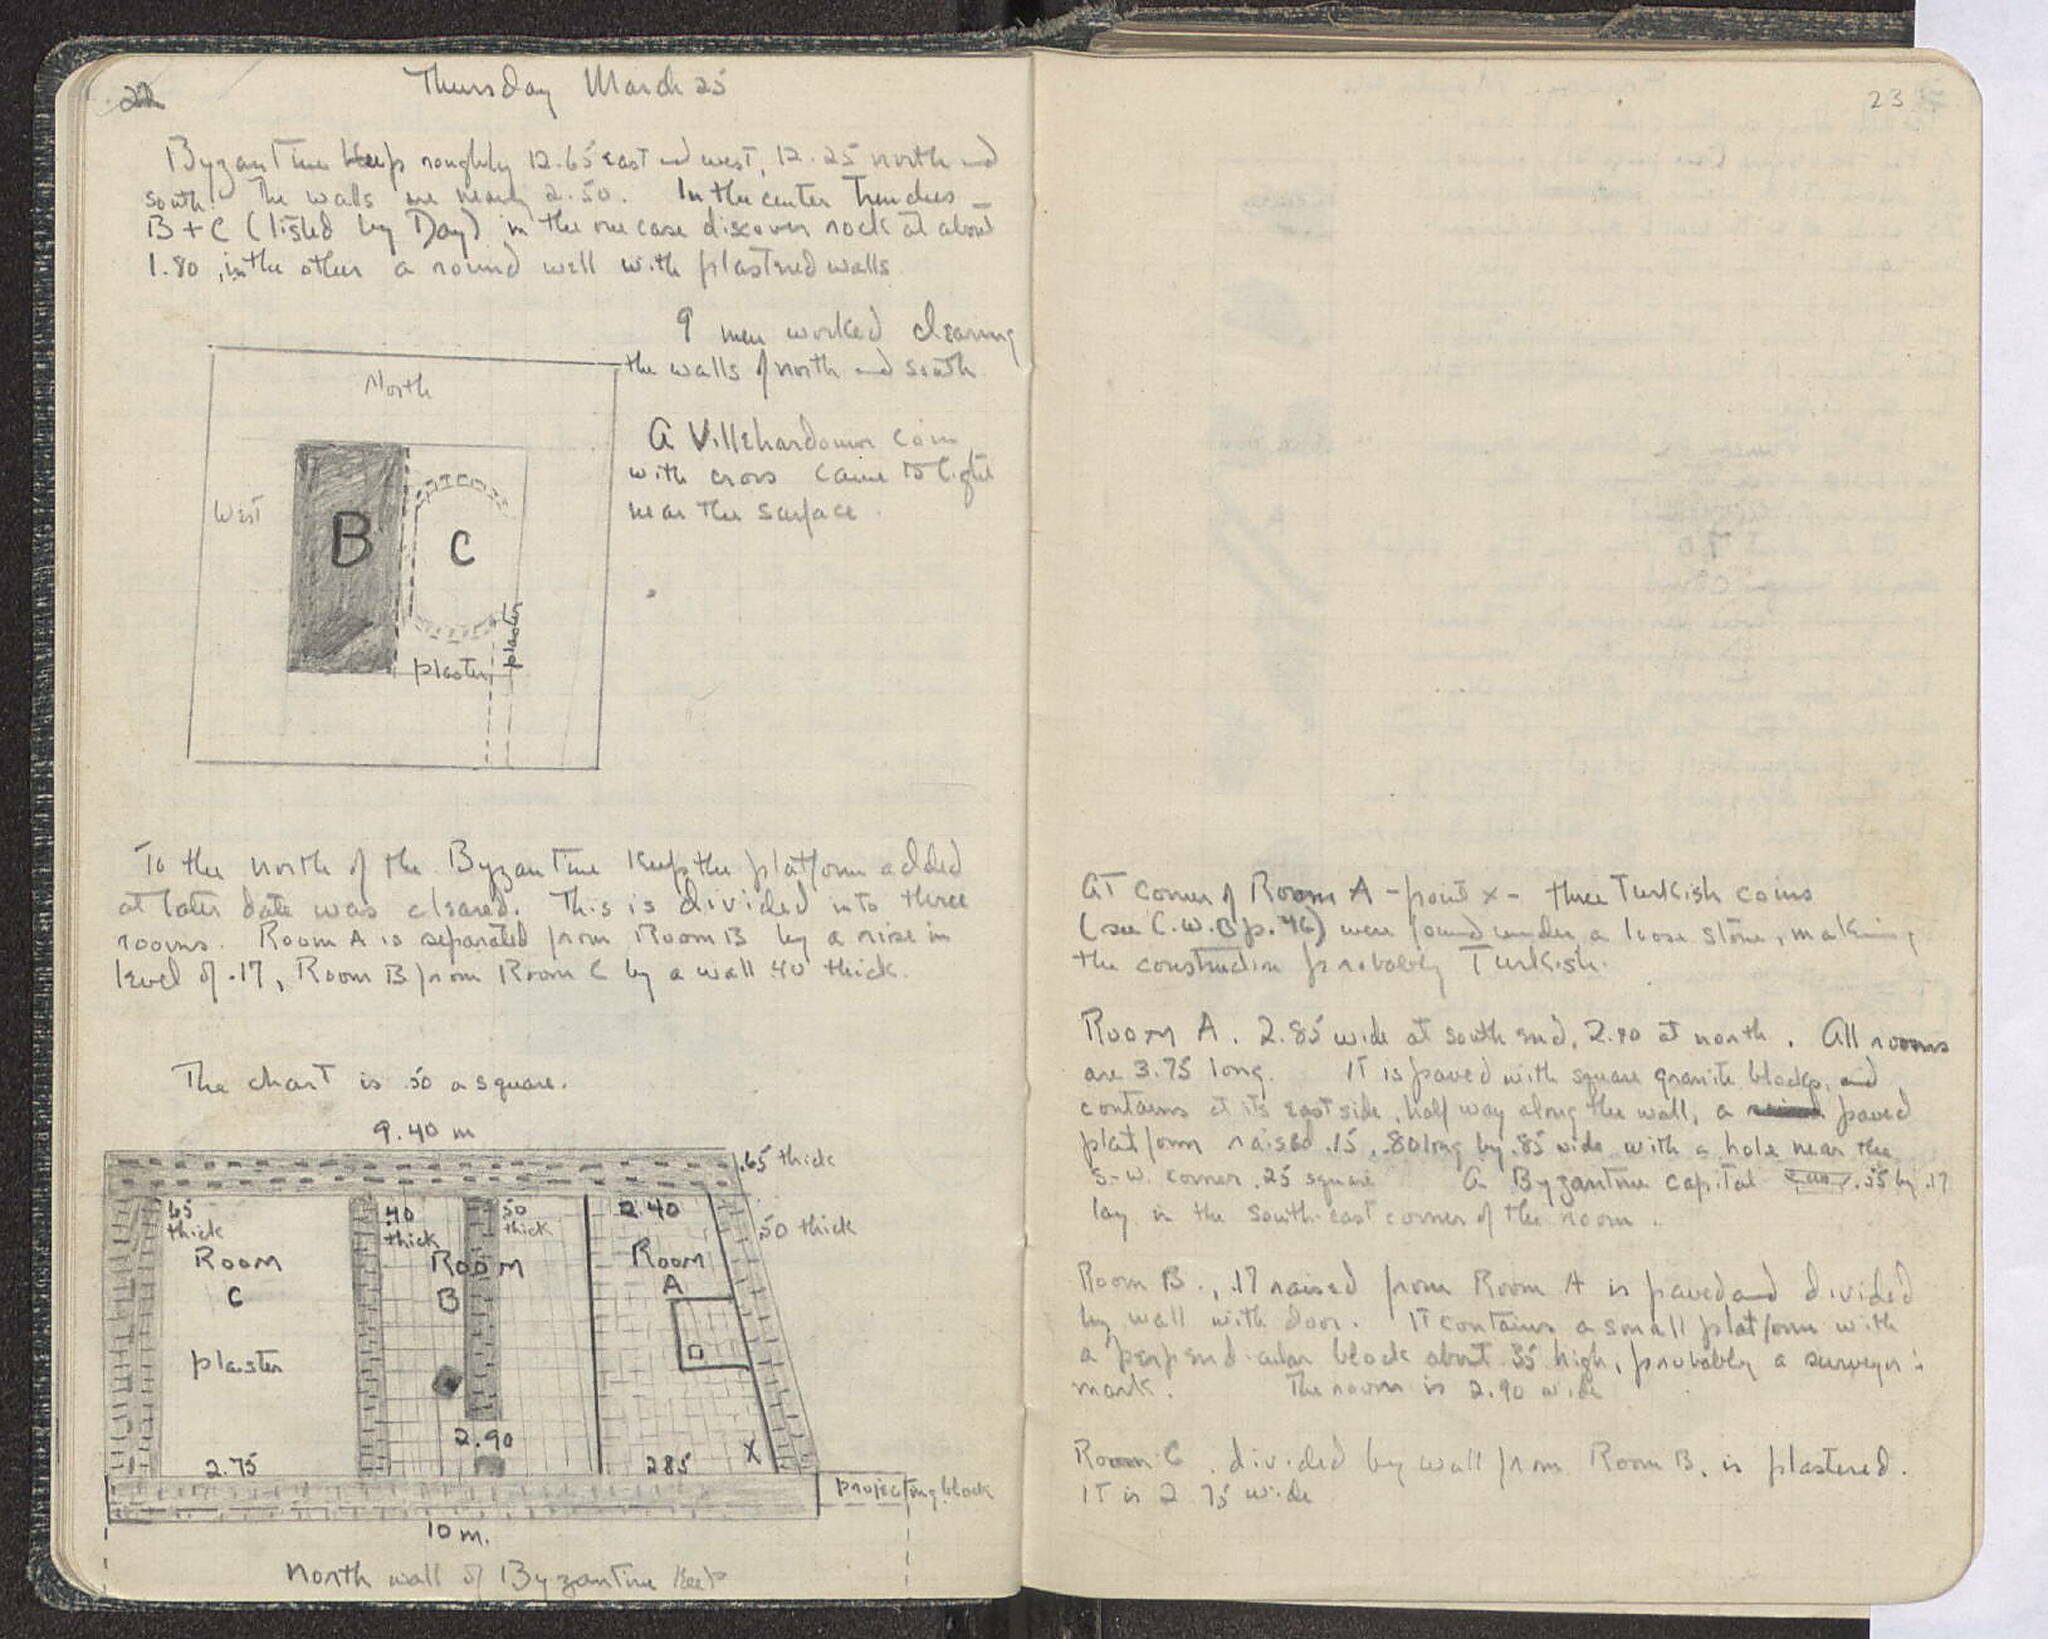 22
Thursday March 25
Byzantine Keep roughly 12.65 east and west, 12.25 north and
south. The walls are nearly 2.50. In the center Trenches
B + C (listed by Day) in the one case discover rock at about
1.80, in the other a round well with plastered walls
9 men worked clearing
the walls of north and south
A Villehardouin coin
with cross came to light
near the surface.
North
West
B
C
plaster
plaster
To the north of the Byzantine Keep the platform added
at later date was cleared. This is divided into three
rooms. Room A is separated from Room B by a rise in
level of .17, Room B from Room C by a wall .40 thick.
The chart is .50 a square.
9.40 m
.65 thick
65
thick
.40
thick
.50
thick
2.40
.50 thick
Room
C
Room
B
Room
A
plaster
2.75
2.90
2.85
X
projecting block
10 m.
North wall of Byzantine Keep
23
At corner of Room A - point x - three Turkish coins
(see C.W.B p. 46) were found under a loose stone, making
the construction probably Turkish.
Room A. 2.85 wide at south end, 2.40 at north. All rooms
are 3.75 long. It is paved with square granite blocks, and
contains at its east side, half way along the wall, a paved
platform raised .15, .80 long by .85 wide with a hole near the
S-W. corner .25 square A Byzantine capital .55 by .17
lay in the south-east corner of the room.
Room B., .17 raised from Room A is paved and divided
by wall with door. It contains a small platform with
a perpendicular block about .35 high, probably a surveyor's
mark. The room is 2.90 wide
Room C, divided by wall from Room B, is plastered.
It is 2 75 wide